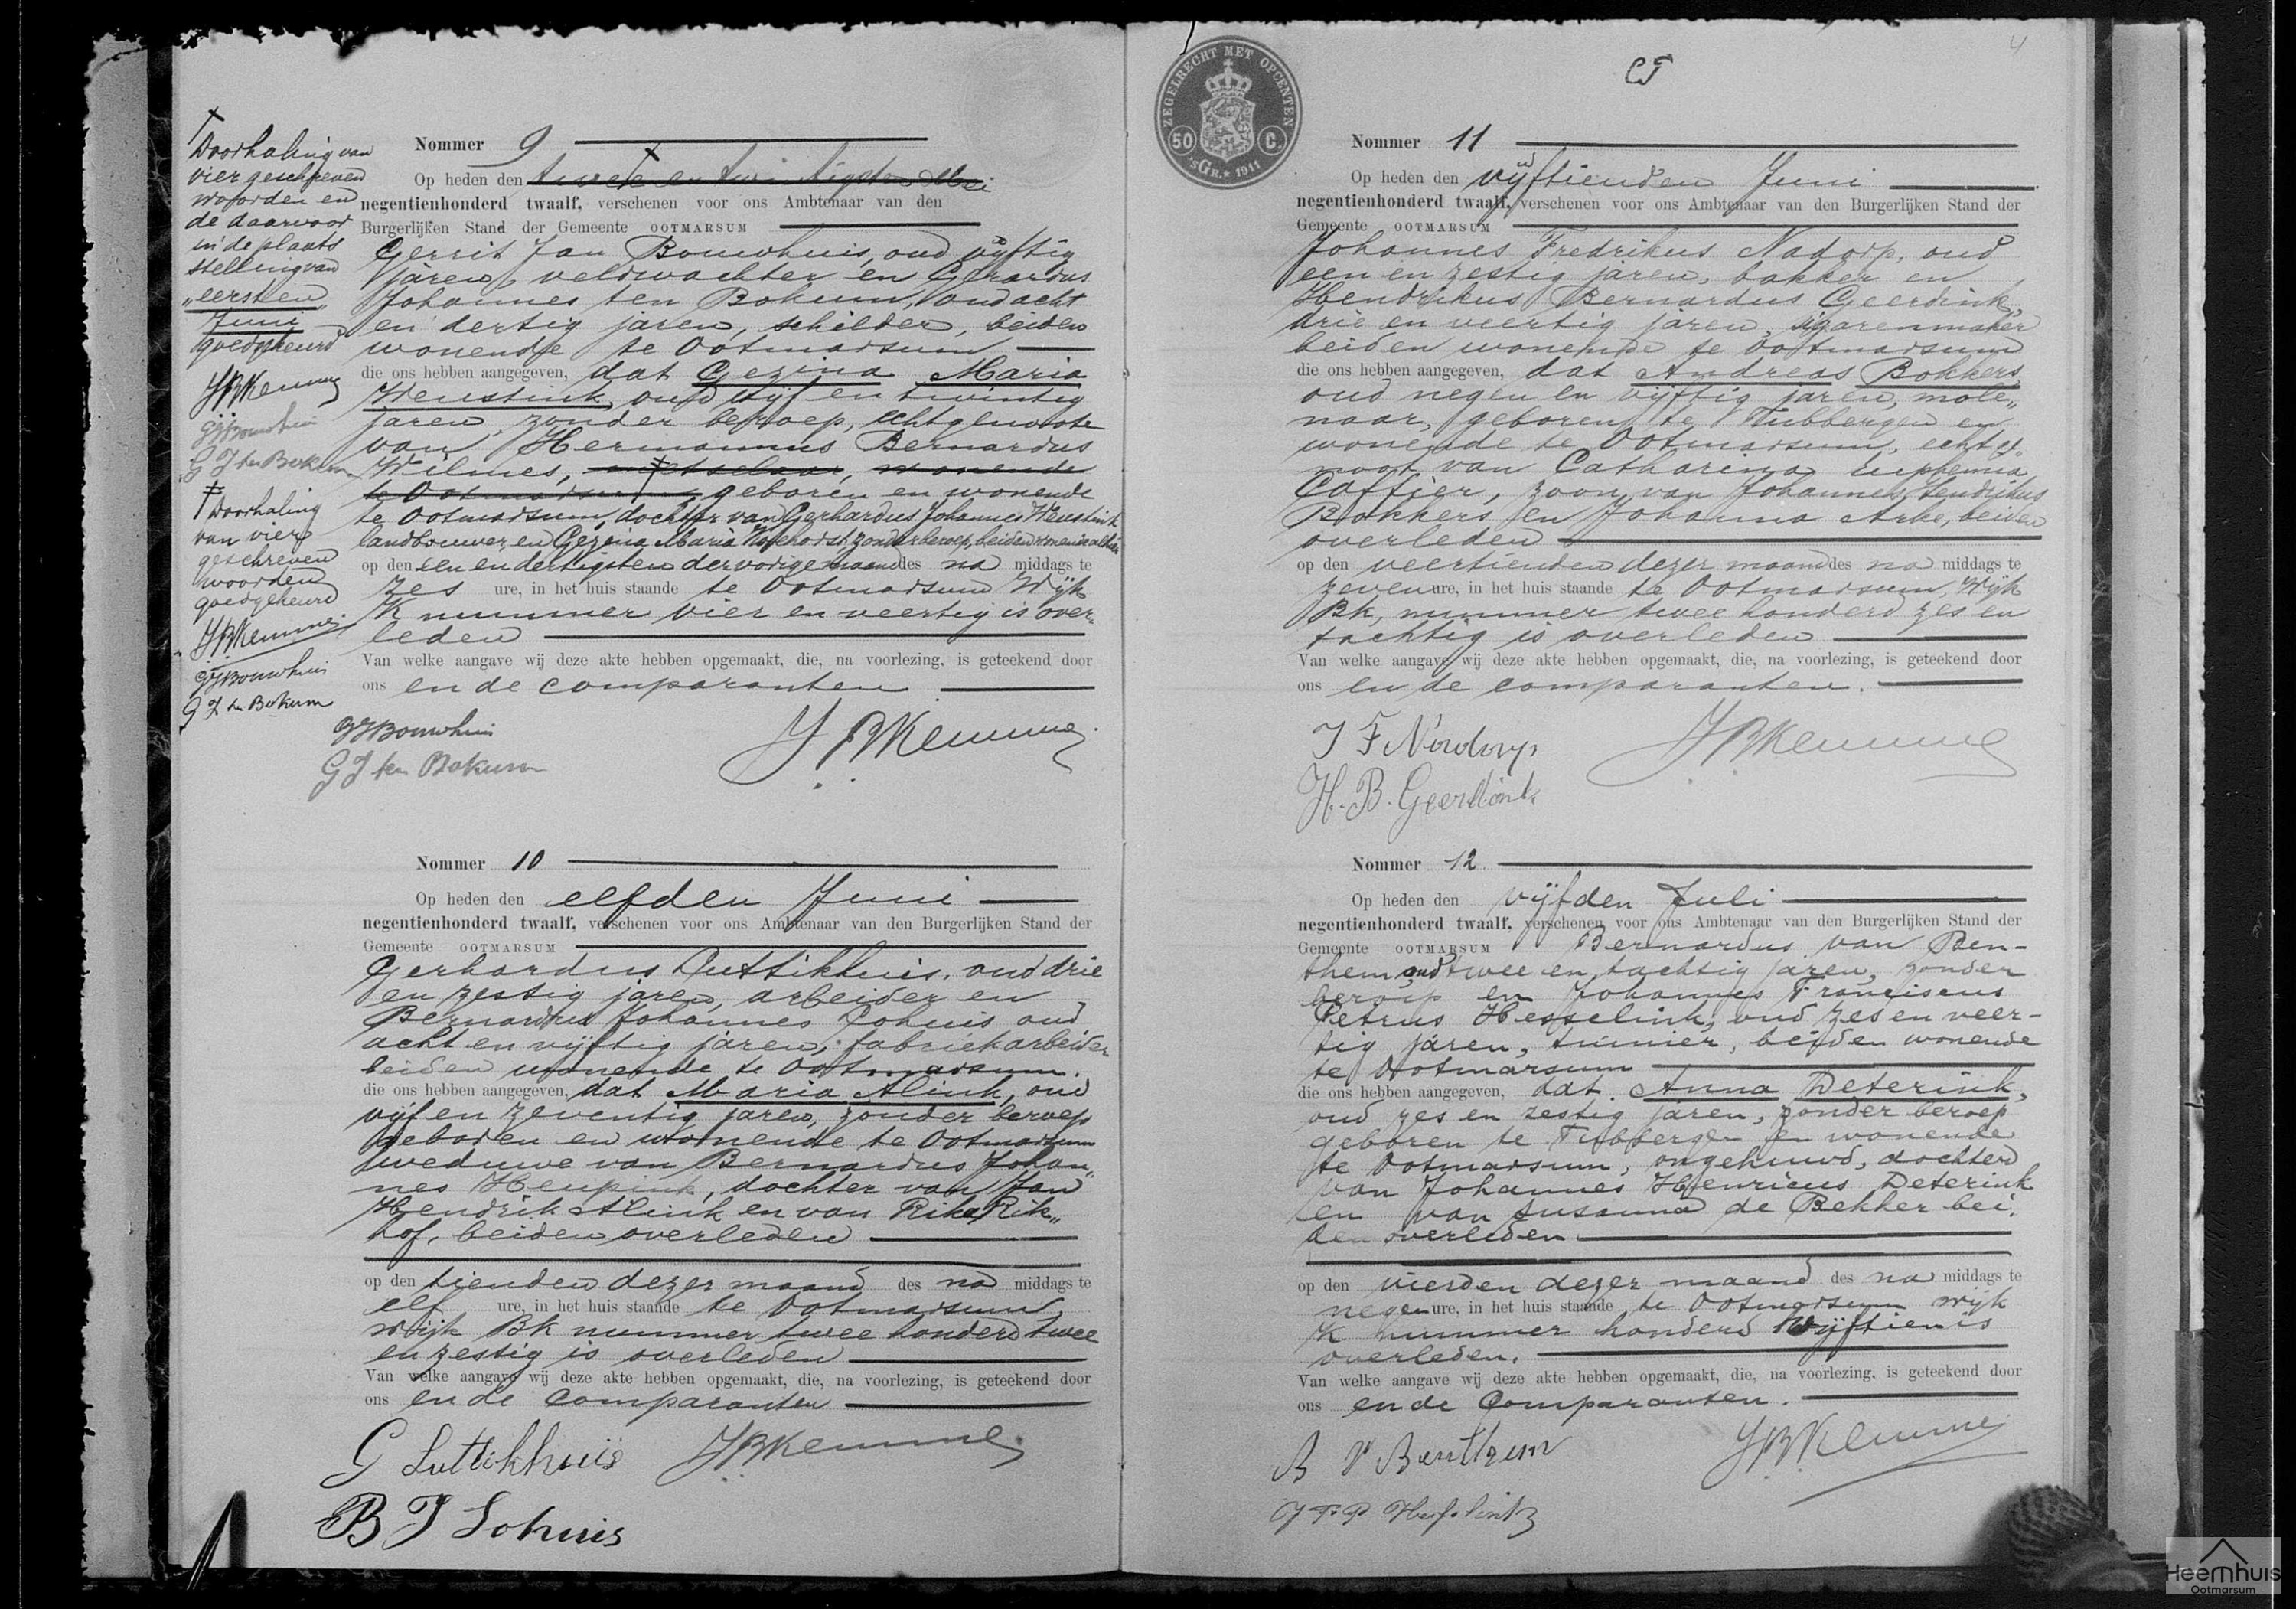 † Doorhaling van
vier geschreven
woorden en
de daarvoor
in de plaats
stelling van
„eersten
Juni"
goedgekeurd
JBKemme
GJBouwhuis
GJ ten Bokum
‡ Doorhaling
van vier
geschreven
woorden
goedgekeurd
JBKemme
GJBouwhuis
GJ ten Bokum
Nommer 9
Op heden den twee en twintigsten Mei
negentienhonderd twaalf, verschenen voor ons Ambtenaar van den
Burgerlijken Stand der Gemeente OOTMARSUM
Gerrit Jan Bouwhuis, oud vijftig
jaren, veldwachter en Gerardus
Johannes ten Bokum, oud acht
en dertig jaren, schilder, beiden
wonende te Ootmarsum
die ons hebben aangegeven, dat Gezina Maria
Weustink, oud vijf en twintig
jaren, zonder beroep, echtgenoote
van Hermannus Bernardus
Wilmes, metselaar, wonende
te Ootmarsum, geboren en wonende
te Ootmarsum, dochter van Gerhardus Johannes Weustink
landbouwer, en Gezena Maria zonder beroep, beiden wonende alhier
op den een en dertigsten der vorige maand des na middags te
zes ure, in het huis staande te Ootmarsum Wijk
K nummer vier en veertig is over„
leden
Van welke aangave wij deze akte hebben opgemaakt, die, na voorlezing, is geteekend door
ons en de comparanten
GJBouwhuis
GJ ten Bokum
JBKemme
Nommer 10
Op heden den elfden Juni
negentienhonderd twaalf, verschenen voor ons Ambtenaar van den Burgerlijken Stand der
Gemeente OOTMARSUM
Gerhardus Luttikhuis, oud drie
en zestig jaren, arbeider en
Bernardus Johannes Lohuis oud
acht en vijftig jaren, fabriekarbeider
beiden wonende te Ootmarsum.
die ons hebben aangegeven, dat Maria Alink, oud
vijf en zeventig jaren, zonder beroep
geboren en wonende te Ootmarsum
weduwe van Bernardus Johan„
nes Heupink, dochter van Jan
Hendrik Alink en van Rika Rik„
hof, beiden overleden
op den tienden dezer maand des na middags te
elf ure, in het huis staande te Ootmarsum,
wijk BK nummer twee honderd twee
en zestig is overleden
Van welke aangave wij deze akte hebben opgemaakt, die, na voorlezing, is geteekend door
ons en de comparanten
G Luttikhuis JBKemme
B J Lohuis
4
ZEGELRECHT MET OPCENTEN
50 C.
'sGR. 1911
Nommer 11
Op heden den vijftienden Juni
negentienhonderd twaalf, verschenen voor ons Ambtenaar van den Burgerlijken Stand der
Gemeente OOTMARSUM
Johannes Fredrikus Nadorp, oud
een en zestig jaren, bakker en
Hendrikus Bernardus Geerdink,
drie en veertig jaren, sigarenmaker
beiden wonende te Ootmarsum
die ons hebben aangegeven, dat Andreas Bokkers,
oud negen en vijftig jaren, mole„
naar, geboren te Tubbergen en
wonende te Ootmarsum, echtge„
noot van Catharina Euphemia
Coffier, zoon van Johannes Hendrikus
Bokkers en Johanna Arke, beiden
overleden
op den veertienden dezer maand des na middags te
zeven ure, in het huis staande te Ootmarsum, Wijk
BK, nummer twee honderd zes en
tachtig is overleden
Van welke aangave wij deze akte hebben opgemaakt, die, na voorlezing, is geteekend door
ons en de comparanten.
J F Nadorp JBKemme
H. B. Geerdink
Nommer 12
Op heden den vijfden Juli
negentienhonderd twaalf, verschenen voor ons Ambtenaar van den Burgerlijken Stand der
Gemeente OOTMARSUM Bernardus van Ben-
them, oud twee en tachtig jaren, zonder
beroep en Johannes Franciscus
Petrus Hesselink, oud zes en veer-
tig jaren, beiden wonende
te Ootmarsum
die ons hebben aangegeven, dat Anna Deterink,
oud zes en zestig jaren, zonder beroep
geboren te Tubbergen en wonende
te Ootmarsum, ongehuwd, dochter
van Johannes Henricus Deterink
en van Susanna de Bekker bei„
den overleden
op den vierden dezer maand des na middags te
negen ure, in het huis staande te Ootmarsum wijk
K nummer honderd vijftien is
overleden.
Van welke aangave wij deze akte hebben opgemaakt, die, na voorlezing, is geteekend door
ons en de Comparanten.
B v Benthem JBKemme
J F P Hesselink
Heemhuis
Ootmarsum